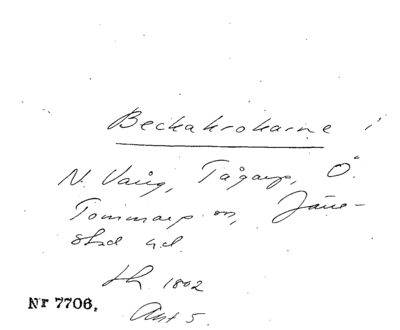 Beckakrokarne i
N. Vång, Tågarp, Ö.
Tommarp m, Järre-
stad h.d.
Lh. 1802
Akt 5.
Nr 7706.